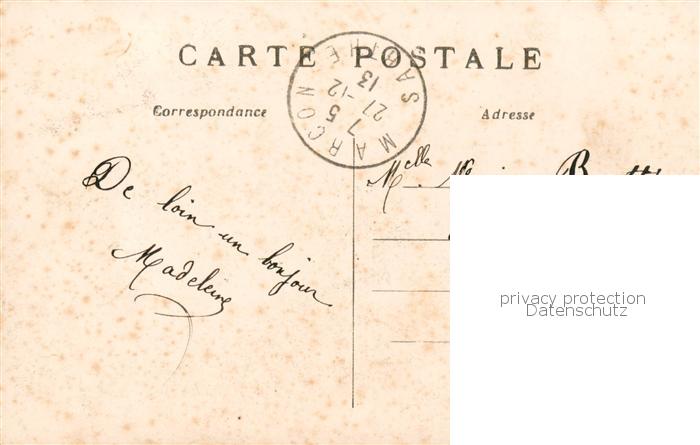 CARTE POSTALE
MARÇON SARTHE
7 5
27 -12
13
Correspondance
Adresse
Melle
De loin un bonjour
Madeleine
privacy protection
Datenschutz